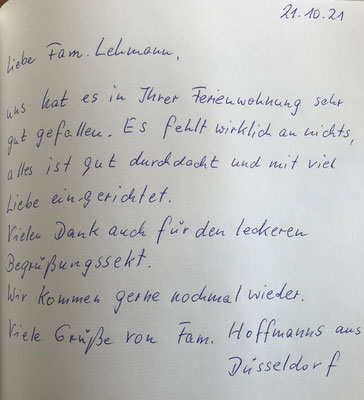 21.10.21
Liebe Fam. Lehmann,
uns hat es in Ihrer Ferienwohnung sehr
gut gefallen. Es fehlt wirklich an nichts,
alles ist gut durchdacht und mit viel
Liebe eingerichtet.
Vielen Dank auch für den leckeren
Begrüßungssekt.
Wir kommen gerne nochmal wieder.
Viele Grüße von Fam. Hoffmanns aus
Düsseldorf